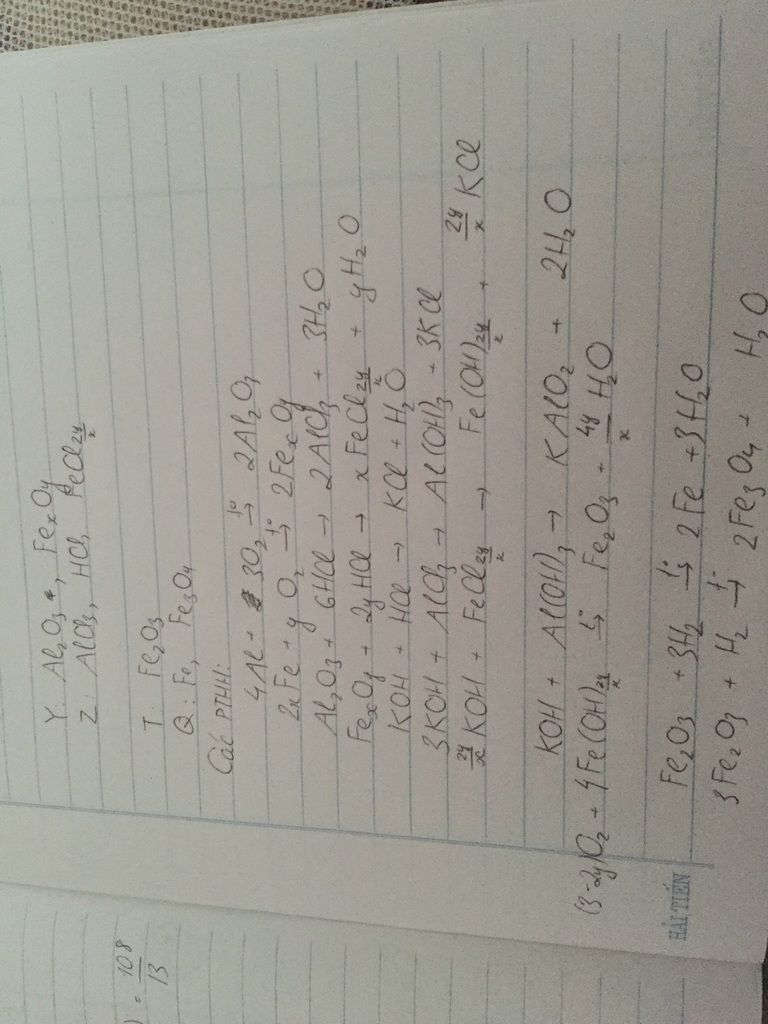 Y: Al₂O₃, FeₓOy
Z: AlCl₃, HCl, FeCl₂y/x
T: Fe₂O₃
Q: Fe, Fe₃O₄
Các PTHH:
4Al + 3O₂ →t° 2Al₂O₃
2xFe + y O₂ →t° 2FeₓOy
Al₂O₃ + 6HCl → 2AlCl₃ + 3H₂O
FeₓOy + 2yHCl → xFeCl₂y/x + yH₂O
KOH + HCl → KCl + H₂O
3KOH + AlCl₃ → Al(OH)₃ + 3KCl
2y/x KOH + FeCl₂y/x → Fe(OH)₂y/x + 2y/x KCl
KOH + Al(OH)₃ → KAlO₂ + 2H₂O
(3-2y)O₂ + 4Fe(OH)₂y/x →t° Fe₂O₃ + 4y/x H₂O
Fe₂O₃ + 3H₂ →t° 2Fe + 3H₂O
3Fe₂O₃ + H₂ →t° 2Fe₃O₄ + H₂O
HẢI TIẾN
) = 108/13